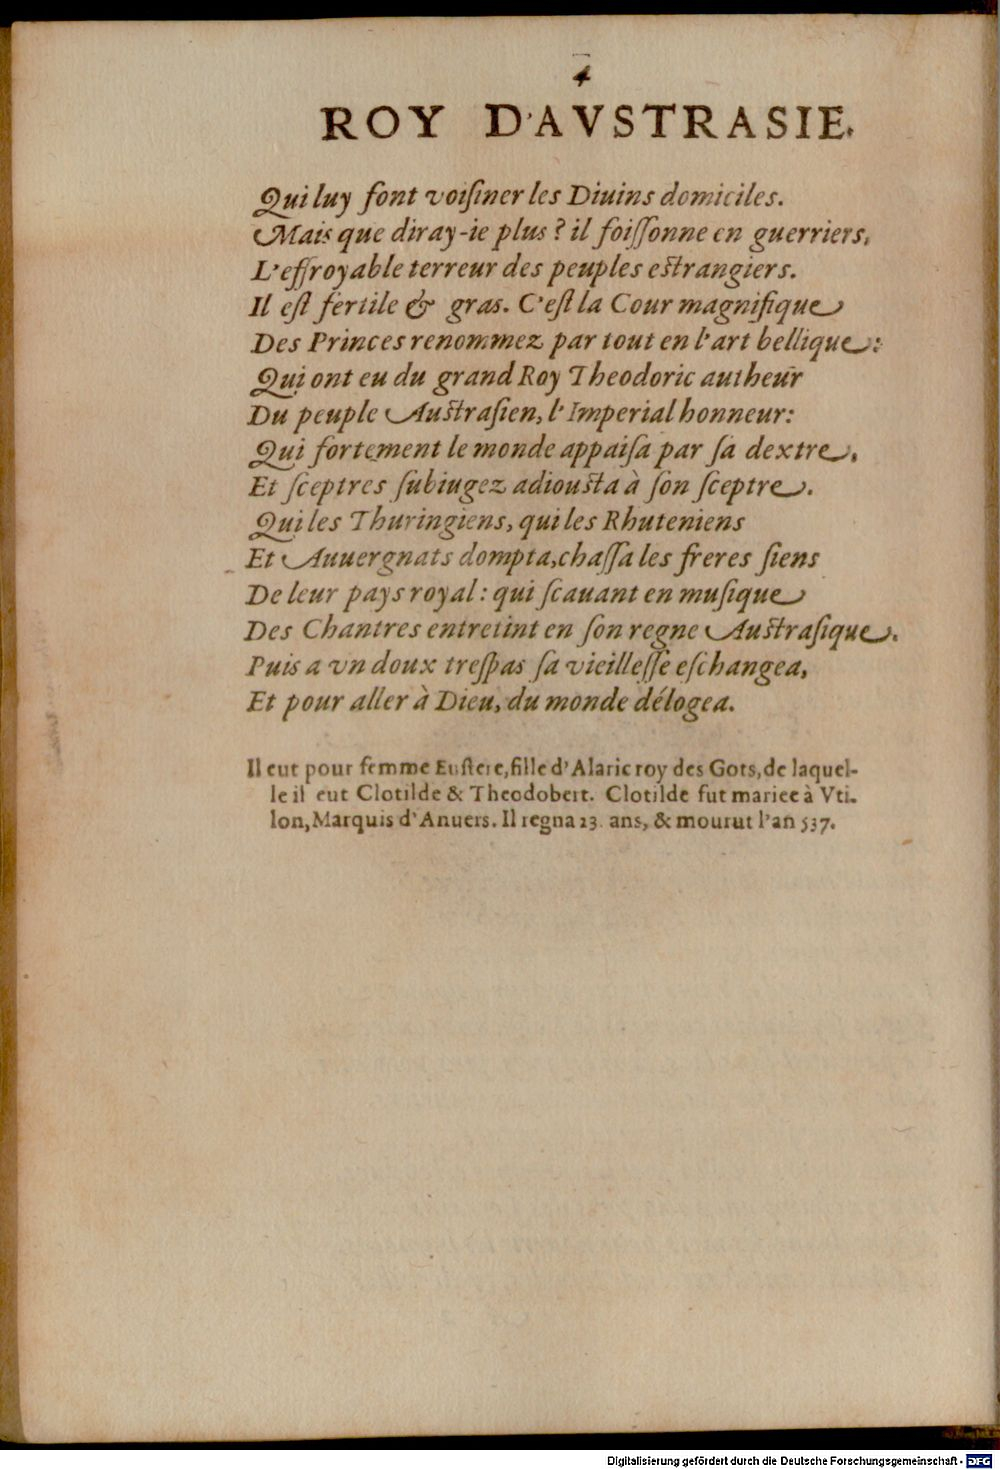 4
ROY D'AVSTRASIE.
Qui luy font voiſiner les Diuins domiciles.
Mais que diray-ie plus? il foiſſonne en guerriers,
L'effroyable terreur des peuples eſtrangiers.
Il eſt fertile & gras. C'eſt la Cour magnifique
Des Princes renommez par tout en l'art bellique:
Qui ont eu du grand Roy Theodoric autheur
Du peuple Auſtraſien, l'Imperial honneur:
Qui fortement le monde appaiſa par ſa dextre,
Et ſceptres ſubiugez adiouſta à ſon ſceptre.
Qui les Thuringiens, qui les Rhuteniens
Et Auuergnats dompta, chaſſa les freres ſiens
De leur pays royal: qui ſcauant en muſique
Des Chantres entretint en ſon regne Auſtraſique.
Puis a vn doux treſpas ſa vieilleſſe eſchangea,
Et pour aller à Dieu, du monde délogea.
Il eut pour femme Euſtere, fille d'Alaric roy des Gots, de laquel-
le il eut Clotilde & Theodobert. Clotilde fut mariee à Vti-
lon, Marquis d'Anuers. Il regna 23. ans, & mourut l'an 537.
Digitalisierung gefördert durch die Deutsche Forschungsgemeinschaft - DFG